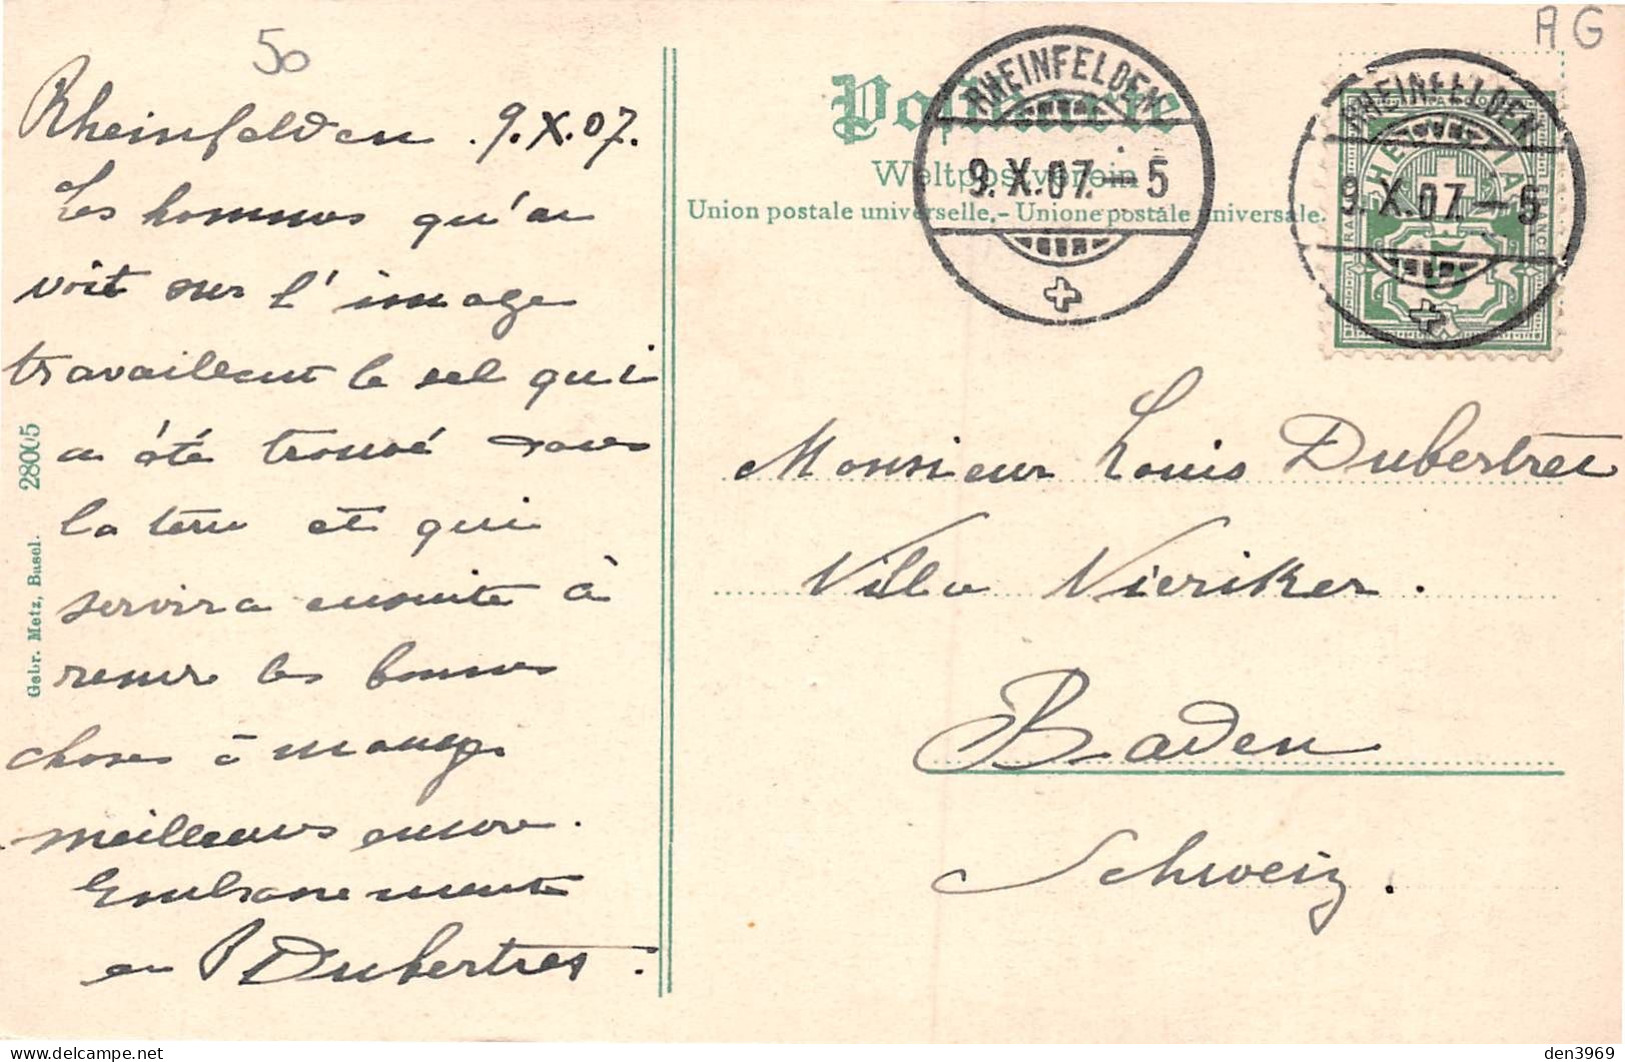 50
AG
Rheinfelden 9.X.07.
Les hommes qu'on
voit sur l'image
travaillent le sel qui
a été trouvé sous
la terre et qui
servira ensuite à
les bonnes
choses à manger
meilleures encore.
Dubertret
Gebr. Metz, Basel. 28005
Postkarte
Weltpostverein
Union postale universelle.- Unione postale universale.
RHEINFELDEN
9.X.07.-5
RHEINFELDEN
9.X.07.-5
HELVETIA
FRANCO
5
Monsieur Louis Dubertret
Villa Vieriker.
Baden
Schweiz.
den3969